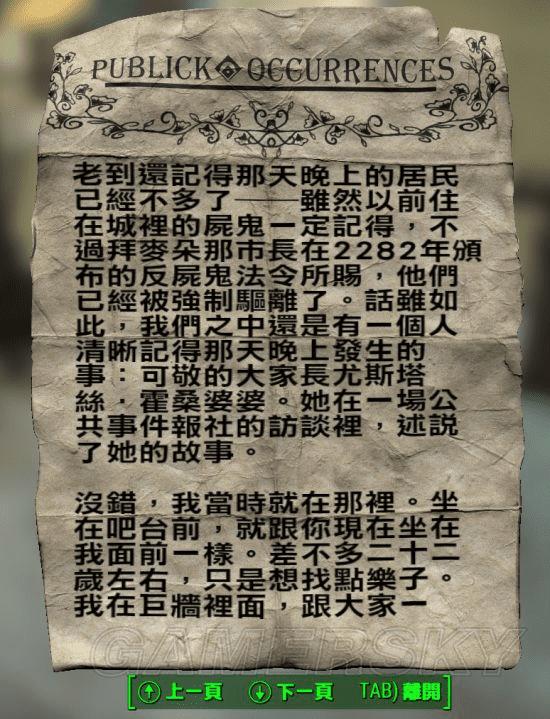 PUBLICK OCCURRENCES
老到還記得那天晚上的居民
已經不多了——雖然以前住
在城裡的屍鬼一定記得，不
過拜麥朵那市長在2282年頒
布的反屍鬼法令所賜，他們
已經被強制驅離了。話雖如
此，我們之中還是有一個人
清晰記得那天晚上發生的
事：可敬的大家長尤斯塔
絲·霍桑婆婆。她在一場公
共事件報社的訪談裡，述說
了她的故事。
沒錯，我當時就在那裡。坐
在吧台前，就跟你現在坐在
我面前一樣。差不多二十二
歲左右，只是想找點樂子。
我在巨牆裡面，跟大家一
GAMERSKY
上一頁 下一頁 TAB) 離開